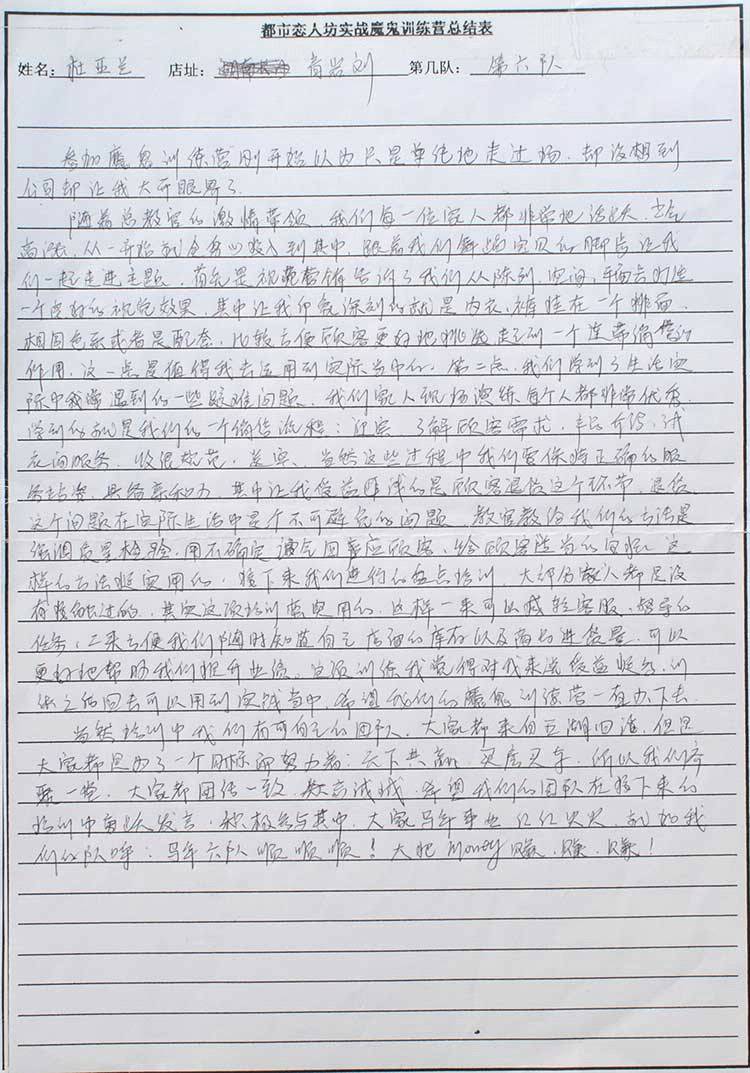 都市恋人坊实战魔鬼训练营总结表
姓名：杜亚兰 店址：青岩刘 第几队：第六队
参加魔鬼训练营刚开始以为只是单纯地走过场，却没想到
公司却让我大开眼界了。
随着总教官的激情带领，我们每一位家人都非常地活跃，
高涨，从一开始就全身心投入到其中，跟着我们舞蹈宝贝的脚步让我
们一起走进主题，首先是视觉营销告诉了我们从陈列，空间，平面去打造
一个良好的视觉效果，其中让我印象深刻的就是内衣，裤挂在一个排面，
相同色系或者是配套，比较方便顾客更好地挑选，起到一个连带销售的
作用，这一点是值得我去运用到实际当中的。第二点，我们学到了生活实
际中我常遇到的一些疑难问题，我们家人现场演练，每个人都非常优秀，
学到的就是我们的一个销售流程：迎宾，了解顾客需求，产品介绍，试
衣间服务，收银规范，送宾，当然这些过程中我们要保持正确的服
务站姿，具备亲和力，其中让我受益匪浅的是顾客退货这个环节，退货
这个问题在实际生活中是个不可避免的问题，教官教给我们的方法是
强调质量检验，用不确定语气回答应顾客，给顾客适当的回执，这
样的方法挺实用的，接下来我们进行的盘点培训，大部分家人都是没
有接触过的，其实这项培训蛮实用的，这样一来可以减轻客服，督导的
任务，二来方便我们随时知道自己店铺的库存以及商品进货量，可以
更好地帮助我们提升业绩，这项训练我觉得对我来说受益挺多，训
练之后回去可以用到实战当中，希望我们的魔鬼训练营一直办下去。
当然培训中我们有可自己的团队，大家都来自五湖四海，但是
大家都是为了一个目标而努力着：天下共赢，买房买车，所以我们齐
聚一堂，大家都团结一致，真诚，希望我们的团队在接下来的
培训中勇跃发言，积极参与其中，大家马年事业红红火火，就如我
们的队呼：马年六队顺顺顺！大把money赚，赚，赚！